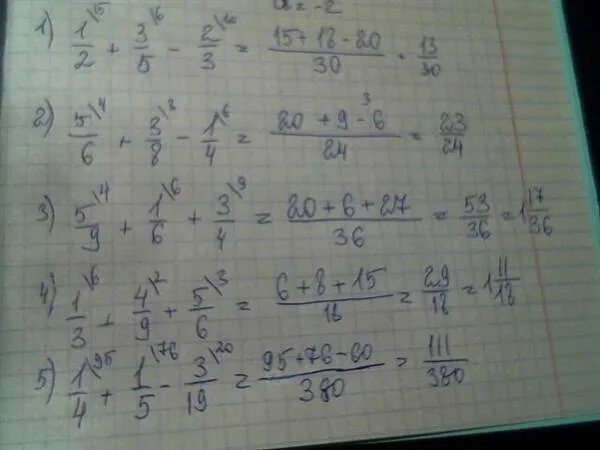 a = -2
1) 1/2 \15 + 3/5 \6 - 2/3 \10 = 15+18-20/30 = 13/30
2) 5/6 \4 + 3/8 \3 - 1/4 \6 = 20+9-6/24 = 23/24
3) 5/9 \4 + 1/6 \6 + 3/4 \9 = 20+6+27/36 = 53/36 = 1 17/36
4) 1/3 \6 + 4/9 \2 + 5/6 \3 = 6+8+15/18 = 29/18 = 1 11/18
5) 1/4 \95 + 1/5 \76 - 3/19 \20 = 95+76-60/380 = 111/380